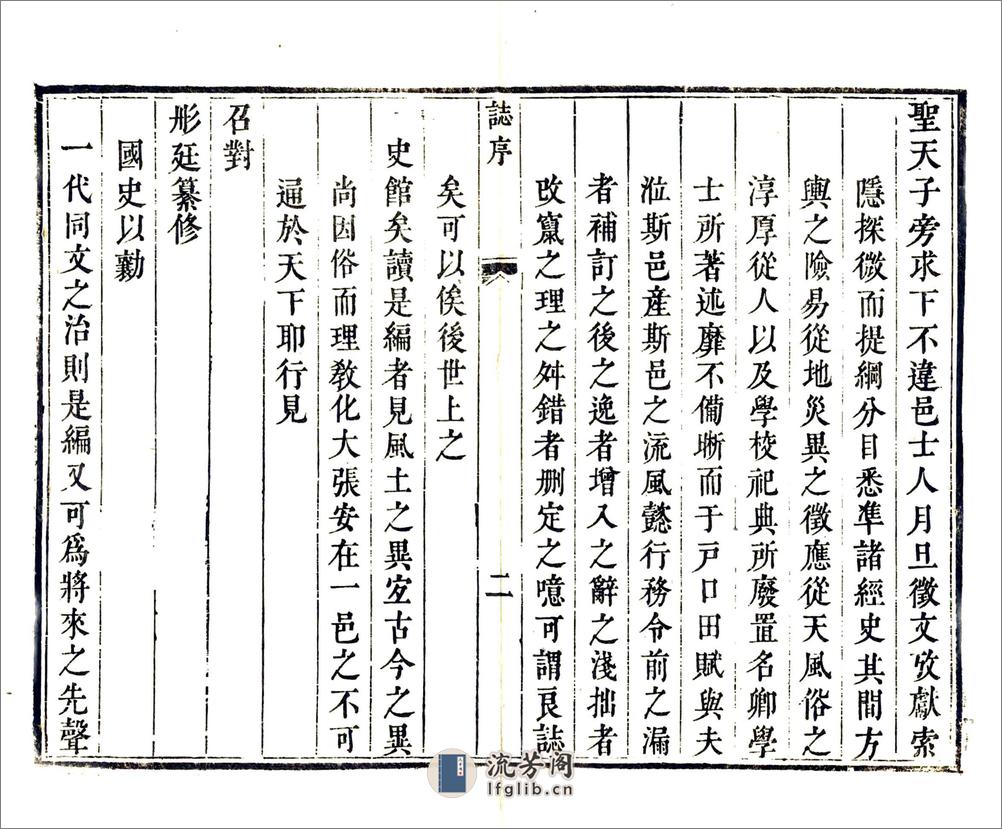 聖天子旁求下不違邑士人月旦徵文攷獻索
隱探微而提綱分目悉準諸經史其間方
輿之險易從地災異之徵應從天風俗之
淳厚從人以及學校祀典所廢置名卿學
士所著述靡不備晰而于戸口田賦與夫
涖斯邑産斯邑之流風懿行務令前之漏
者補訂之後之逸者增入之辭之淺拙者
改竄之理之舛錯者删定之噫可謂良誌
誌序
二
矣可以俟後世上之
史館矣讀是編者見風土之異宐古今之異
尚因俗而理敎化大張安在一邑之不可
通於天下耶行見
召對
彤廷纂修
國史以勷
一代同文之治則是編又可爲將來之先聲
流芳阁
lfglib.cn